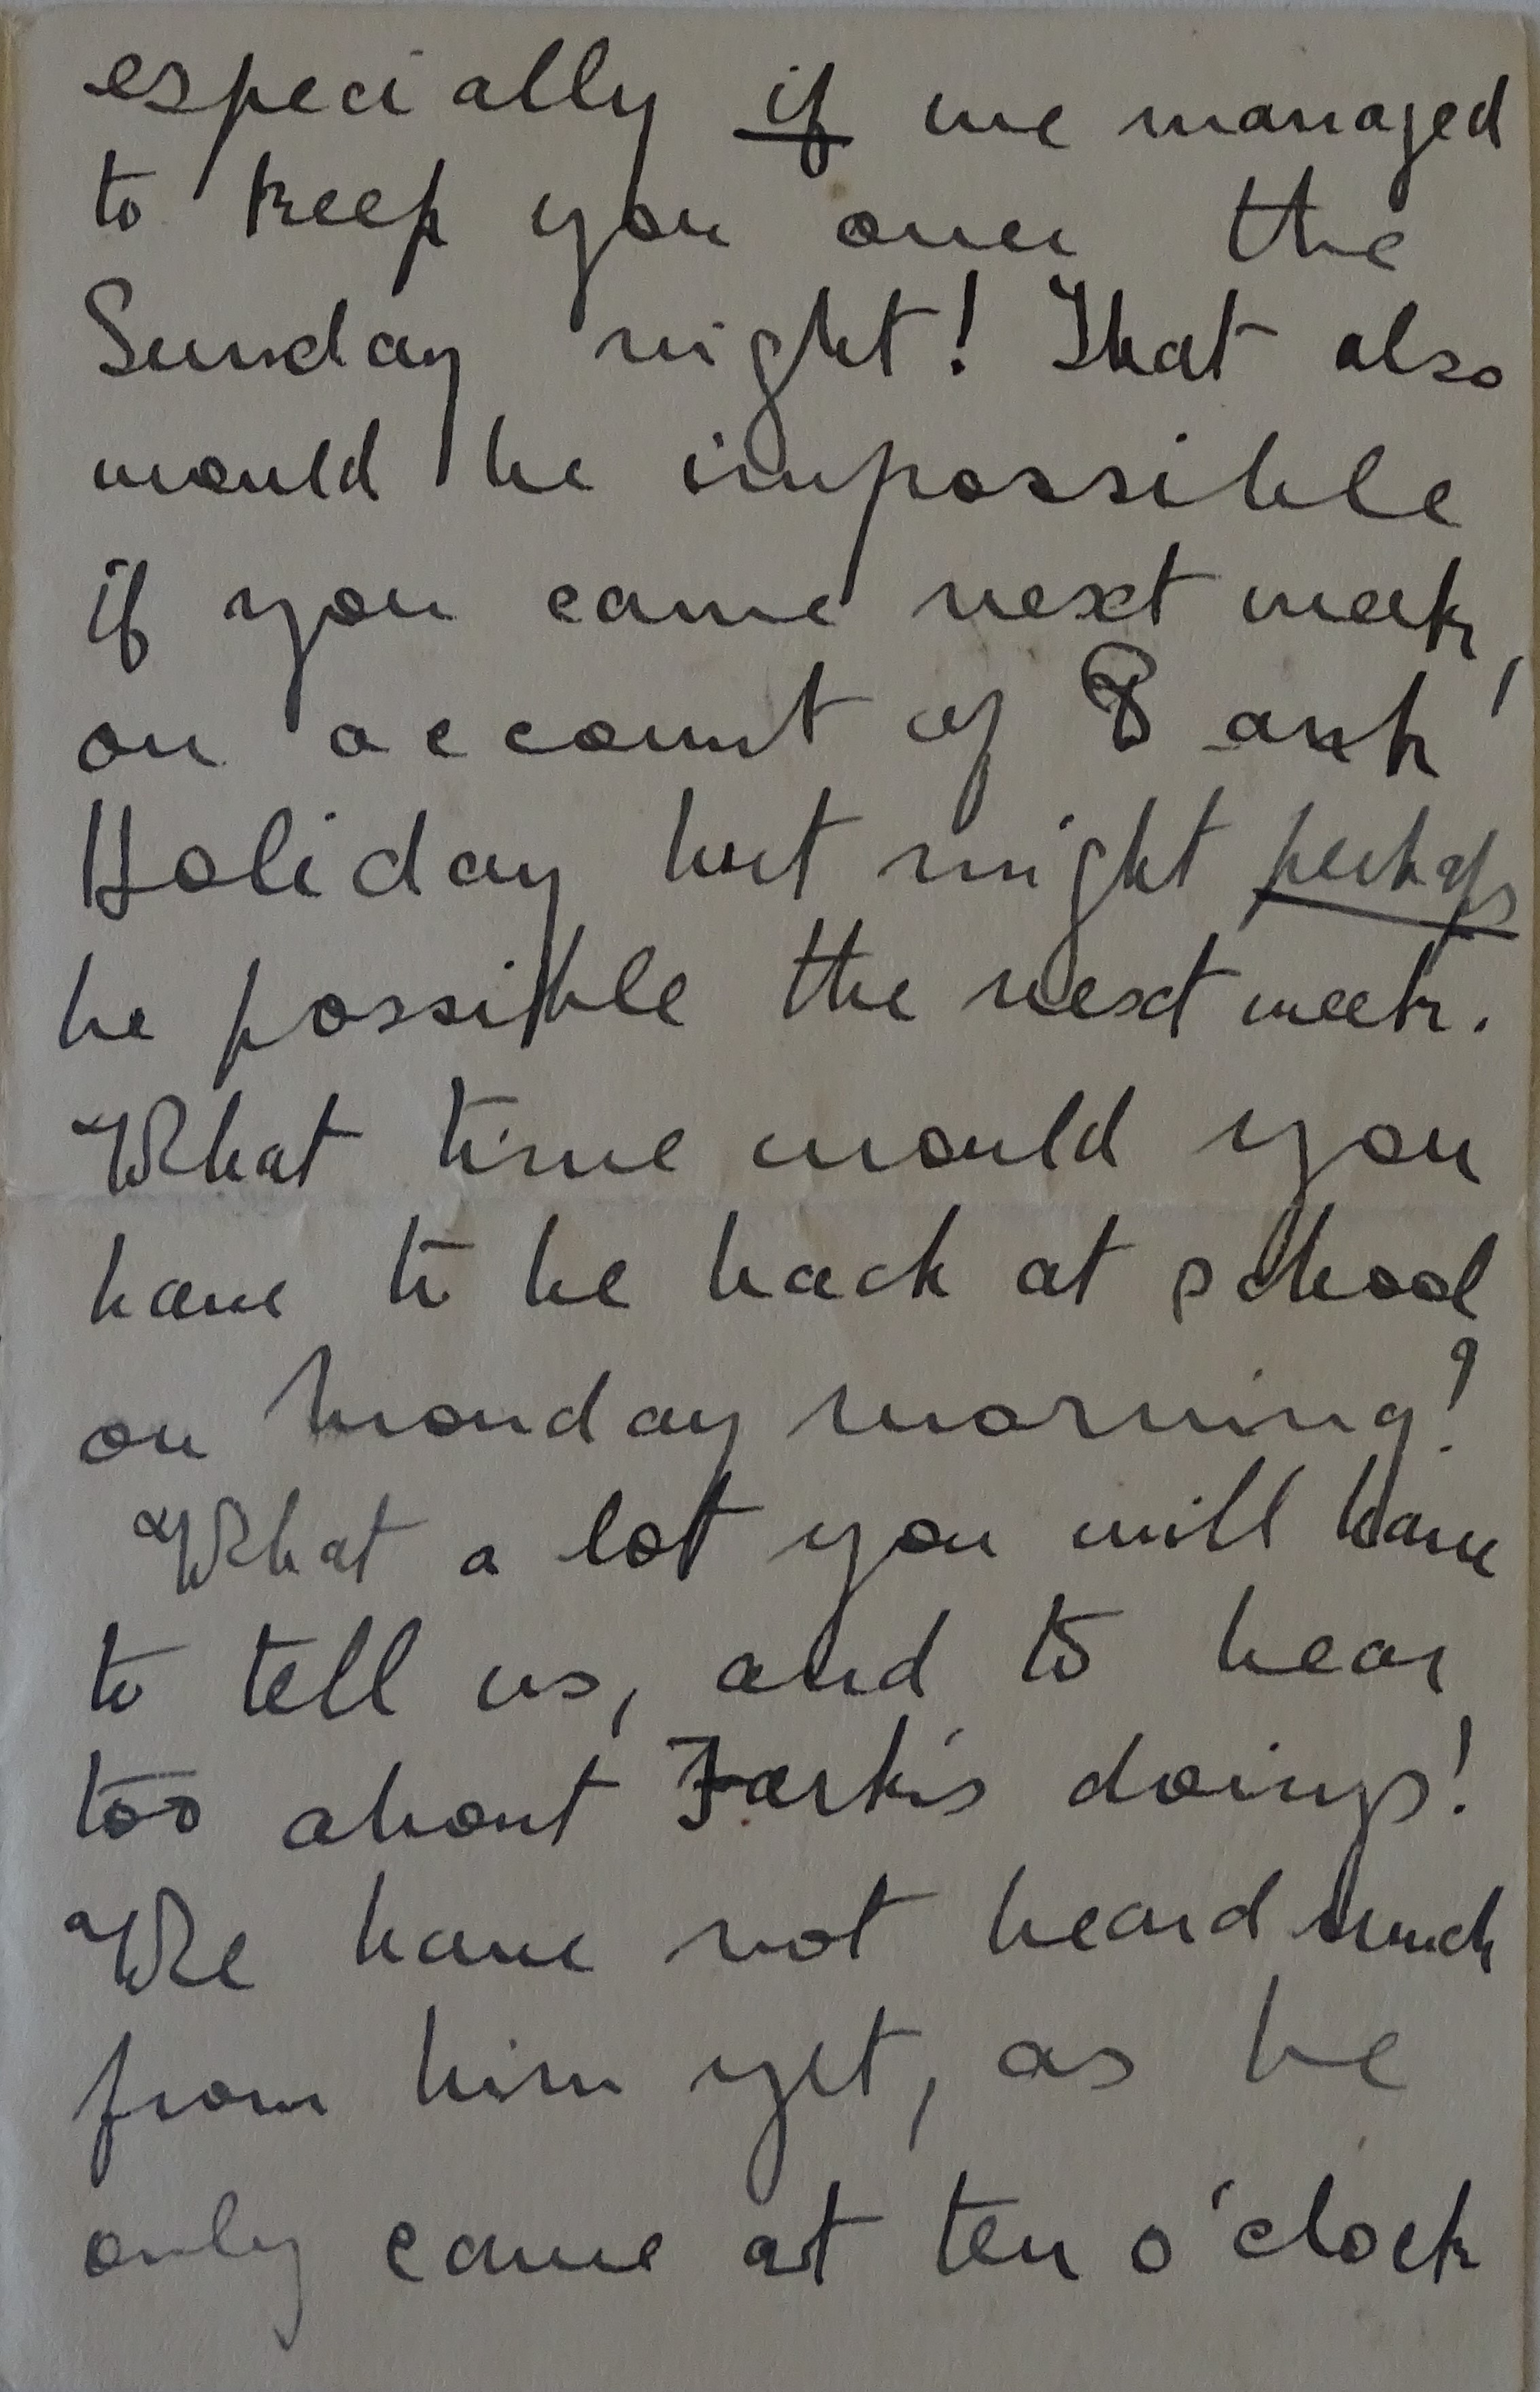 especially if we managed
to keep you over the
Sunday night! That also
would be impossible
if you came next week,
on account of Bank
Holiday but might perhaps
be possible the next week.
What time would you
have to be back at school
on Monday morning?
What a lot you will have
to tell us, and to hear
too about doings!
We have not heard much
from him yet, as he
only came at ten o'clock